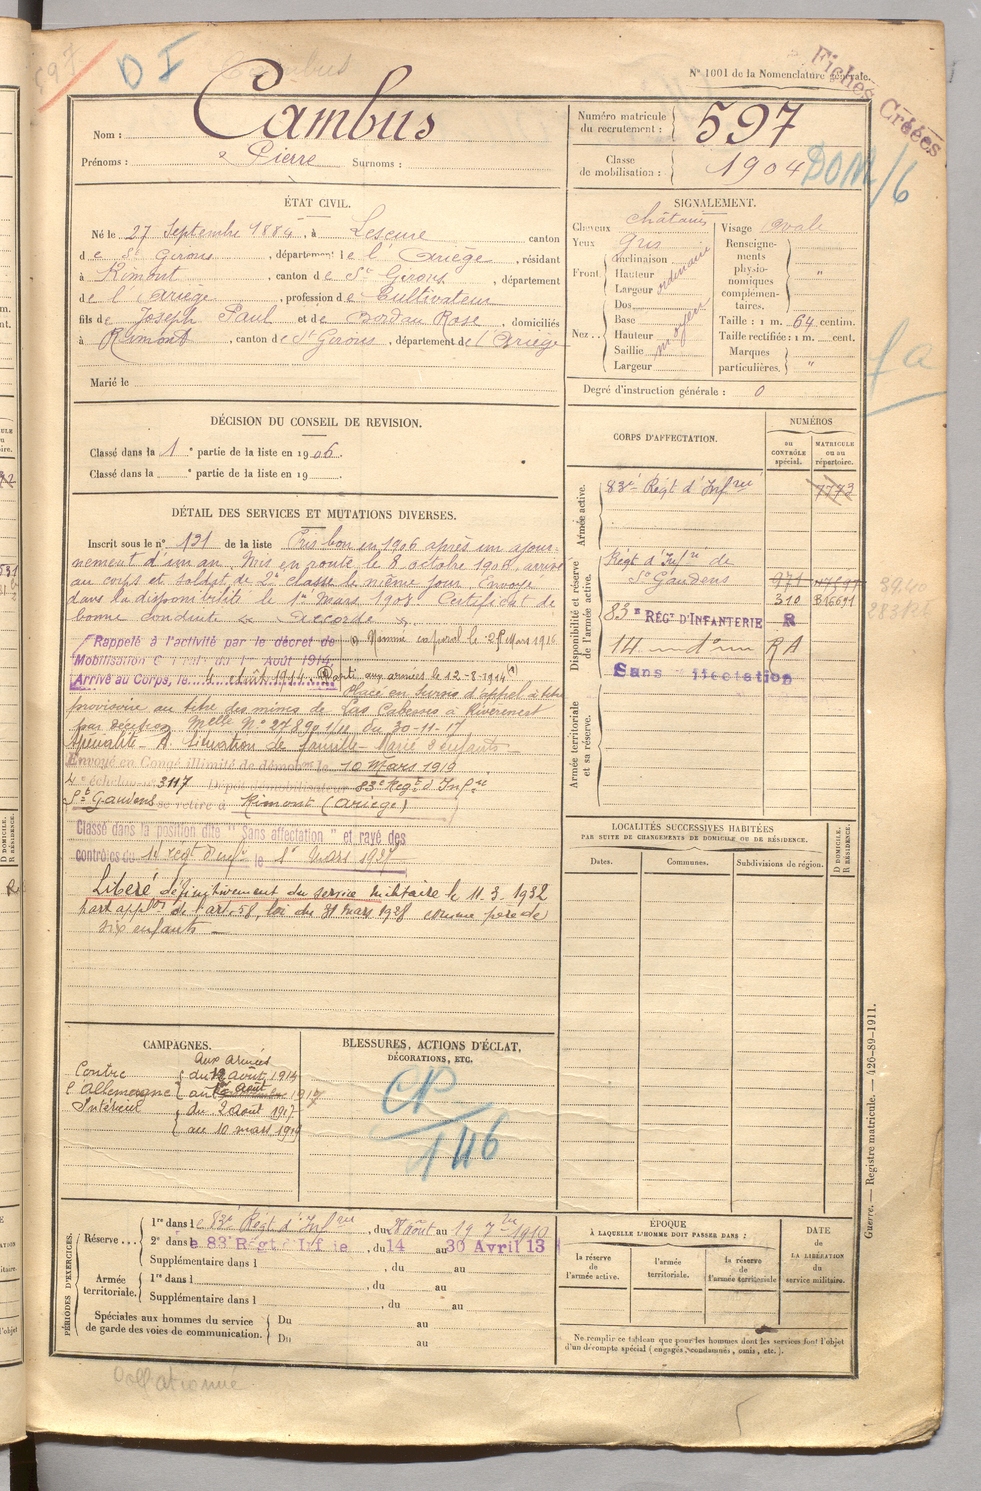 D I
N° 1001 de la Nomenclature générale.
Fiches Créées
Nom : Cambus
Prénoms : Pierre Surnoms :
Numéro matricule du recrutement : 597
Classe de mobilisation : 1904
DOM/6
ÉTAT CIVIL.
Né le 27 Septembre 1884, à Lescure canton
de St Girons, département de l'Ariège, résidant
à Rimont, canton de St Girons, département
de l'Ariège, profession de Cultivateur
fils de Joseph Paul et de Bordau Rose, domiciliés
à Rimont, canton de St Girons, département de l'Ariège
Marié le
SIGNALEMENT.
Cheveux châtains
Yeux gris
Front
Inclinaison
Hauteur
Largeur
ordinaire
Nez
Dos
Base
Hauteur
Saillie
Largeur
moyen
Visage ovale
Renseignements physionomiques complémentaires. "
Taille : 1 m. 64 centim.
Taille rectifiée : 1 m. cent.
Marques particulières. "
Degré d'instruction générale : 0
DÉCISION DU CONSEIL DE REVISION.
Classé dans la 1e partie de la liste en 1906.
Classé dans la e partie de la liste en 19
CORPS D'AFFECTATION.
NUMÉROS
au CONTRÔLE spécial.
MATRICULE ou au répertoire.
Armée active.
83e Régt d'Infrie 7773
Disponibilité et réserve de l'armée active.
Régt d'Infrie de
St Gaudens 971
310
83e RÉGt D'INFANTERIE R
14 RA
Sans affectation
Armée territoriale et sa réserve.
DÉTAIL DES SERVICES ET MUTATIONS DIVERSES.
Inscrit sous le n° 121 de la liste Pris bon en 1906 après un ajour-
nement d'un an. Mis en route le 8 octobre 1906, arrivé
au corps et soldat de 2e classe le même jour. Envoyé
dans la disponibilité le 1er Mars 1908. Certificat de
bonne conduite "Accordé".
Rappelé à l'activité par le décret de
Mobilisation Générale du 1er Août 1914.
Arrivé au Corps, le 4 août 1914. Parti aux armées le 12-8-1914
Placé en sursis d'appel à titre
provisoire au titre des mines de Las Cabesses à Riverenert
par décision Melle N° 27890 1/11 du 30-11-17
Spécialité - A. Situation de famille - Marié 2 enfants
Envoyé en Congé illimité de démobon le 10 Mars 1919
4e échelon n° 3117 Dépôt démobilisateur 83e Régt d'Infrie
St Gaudens se retire à Rimont (Ariège)
Classé dans la position dite "Sans affectation" et rayé des
contrôles du 14e régt d'infie le 1er Mars 1927
Libéré définitivement du service militaire le 11.3.1932
par appon de l'art. 58, loi du 31 mars 1928 comme père de
six enfants
LOCALITÉS SUCCESSIVES HABITÉES
PAR SUITE DE CHANGEMENTS DE DOMICILE OU DE RÉSIDENCE.
Dates.
Communes.
Subdivisions de région.
D DOMICILE.
R RÉSIDENCE.
CAMPAGNES.
Aux armées
Contre l'Allemagne
du 12 août 1914
au 1er Août 1917
Intérieur
du 2 août 1917
au 10 mars 1919
BLESSURES, ACTIONS D'ÉCLAT,
DÉCORATIONS, ETC.
CP
116
PÉRIODES D'EXERCICES.
Réserve
1re dans le 83e Régt d'Infrie, du 28 août au 19 7bre 1910
2e dans le 83e Régt Inf ie, du 14 au 30 Avril 13
Supplémentaire dans l , du au
Armée territoriale.
1re dans l , du au
Supplémentaire dans l , du au
Spéciales aux hommes du service de garde des voies de communication.
Du au
Du au
ÉPOQUE
À LAQUELLE L'HOMME DOIT PASSER DANS :
la réserve de l'armée active.
l'armée territoriale.
la réserve de l'armée territoriale
DATE de LA LIBÉRATION du service militaire.
Ne remplir ce tableau que pour les hommes dont les services font l'objet
d'un décompte spécial (engagés, condamnés, omis, etc.).
Guerre. — Registre matricule. — 426-89-1911.
Collationné